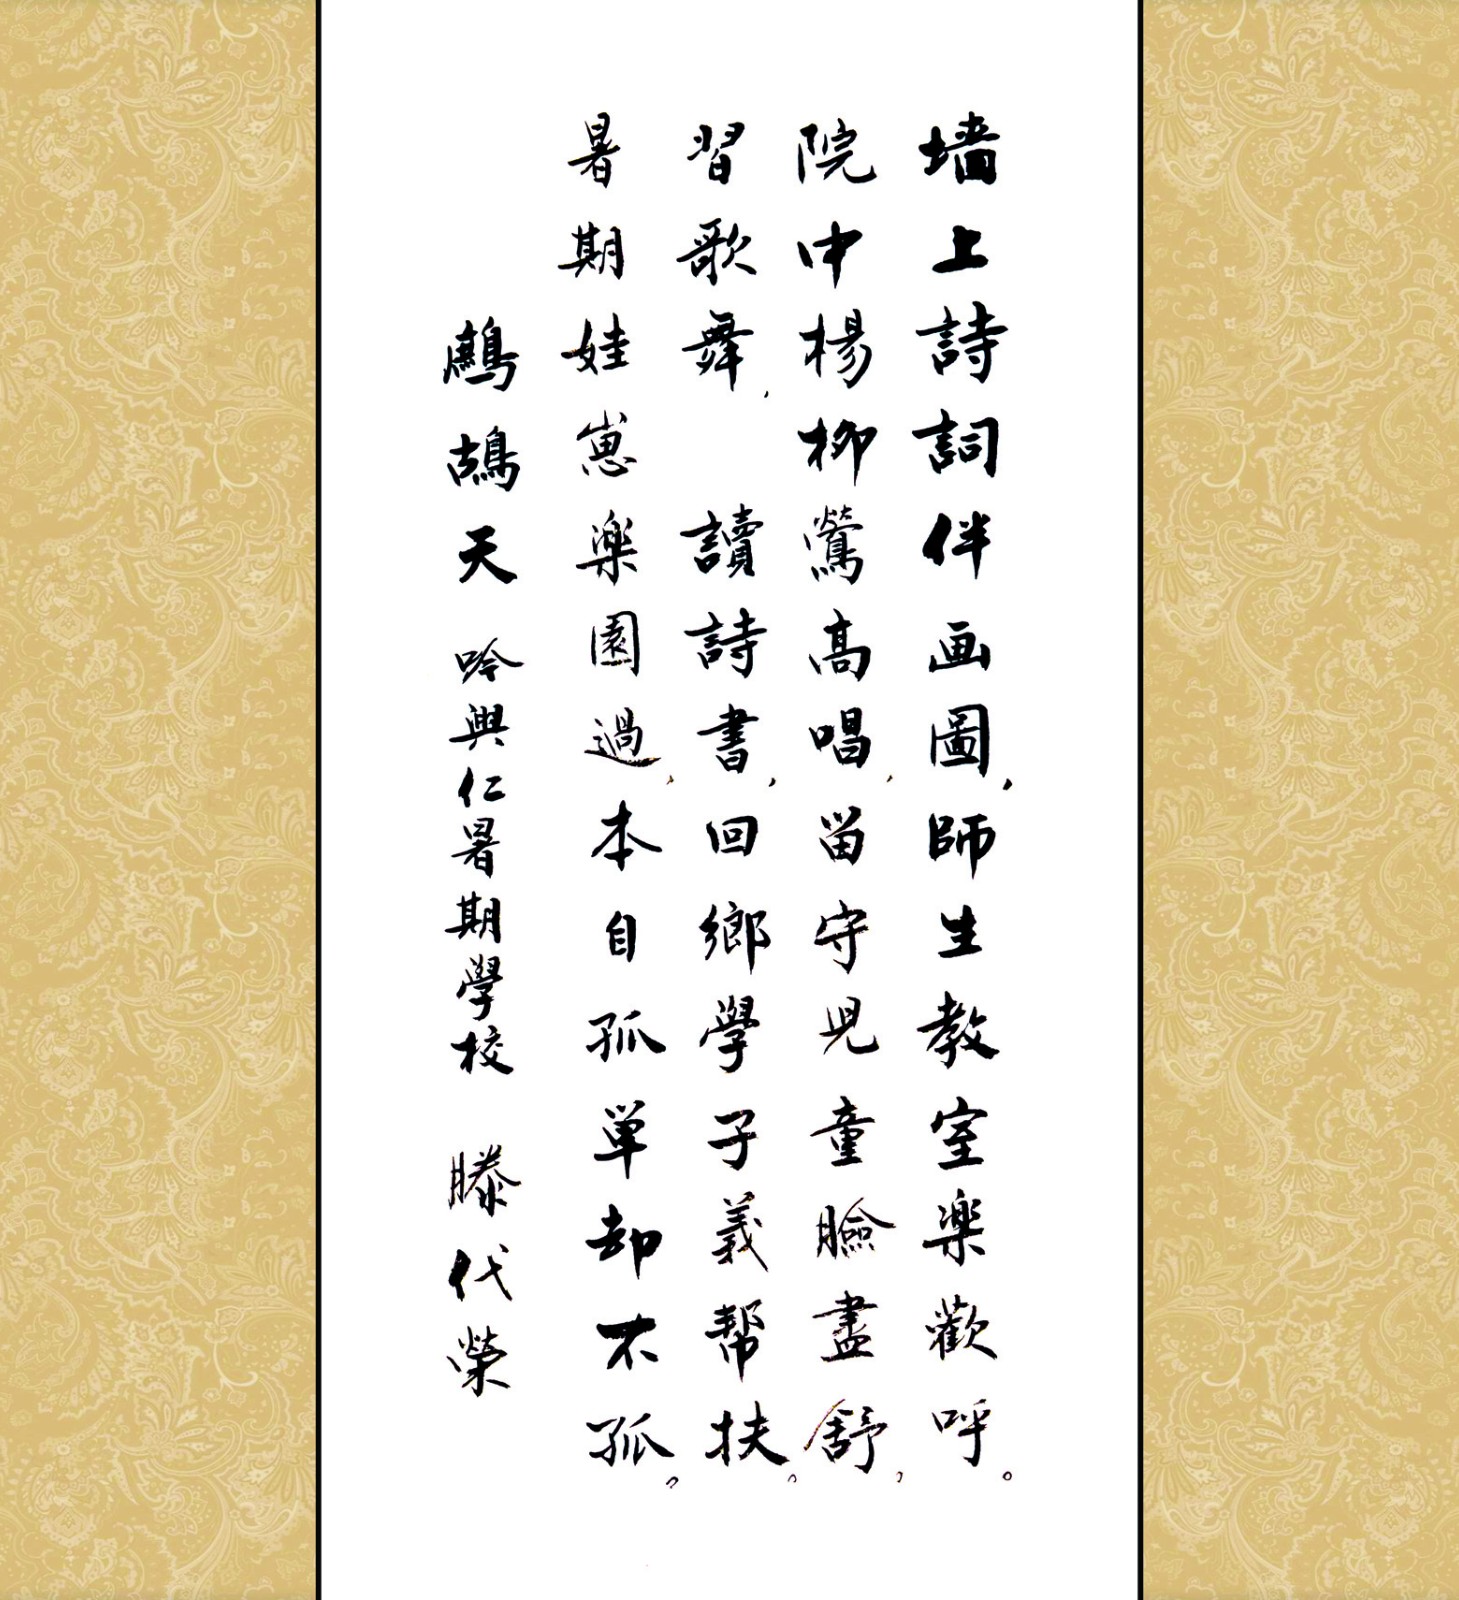 墙上詩詞伴画圖，師生教室楽歡呼。
院中楊柳鶯高唱，留守児童臉盡舒，
習歌舞，讀詩書，回鄉學子義帮扶。
暑期娃崽楽園過，本自孤单却不孤。
鷓鴣天 吟興仁暑期學校 滕代榮